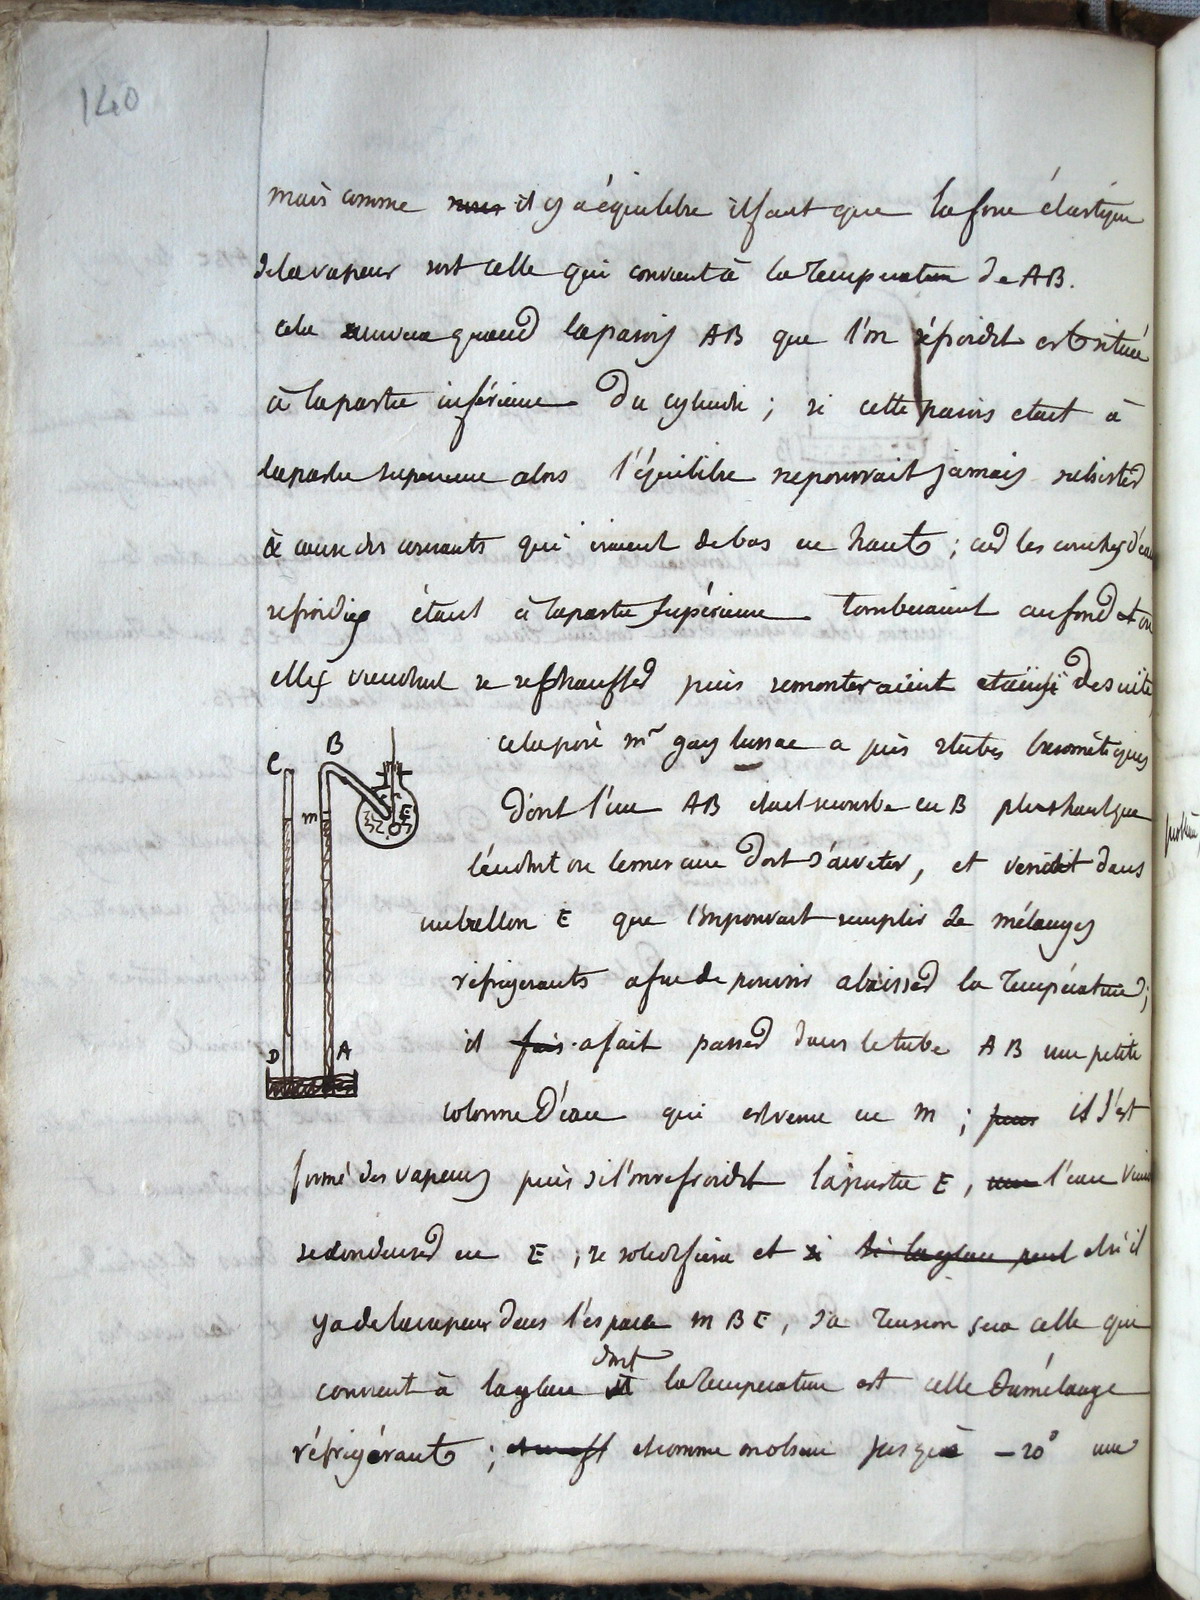 140
mais comme nous il y a équilibre il faut que la force élastique
de la vapeur soit celle qui convient à la température de AB.
cela arrivera quand la parois AB que l'on réfroidit est située
à la partie inférieure du cylindre ; si cette parois etait à
la partie supérieure alors l'équilibre ne pourrait jamais subsister
à cause des courants qui iraient de bas en haut ; car les couches d'eau
refroidies étant à la partie supérieure tomberaient au fond et ou
elles viendrait se rechauffer puis remonteraient et ainsi de suite
cela posé mr gay lussac a pris 2 tubes barométriques
dont l'un AB etait recourbé en B plus haut que
l'endroit ou le mercure doit s'arreter, et rendait dans
un ballon E que l'on pouvait remplir de mélanges
réfrigerants afin de pouvoir abaisser la température ;
il fais a fait passer dans le tube AB une petite
colonne d'eau qui est venue en m ; puis il s'est
formé des vapeurs puis si l'on refroidit la partie E, l'eau
se condenser en E, se solidifiera et si si la glace peut et s'il
y a de la vapeur dans l'espace m B E, sa tension sera celle qui
convient à la glace dont la température est celle du mélange
réfrigérant ; et comme on observe jusqu'à -20° une
C
B
m
E
D
A